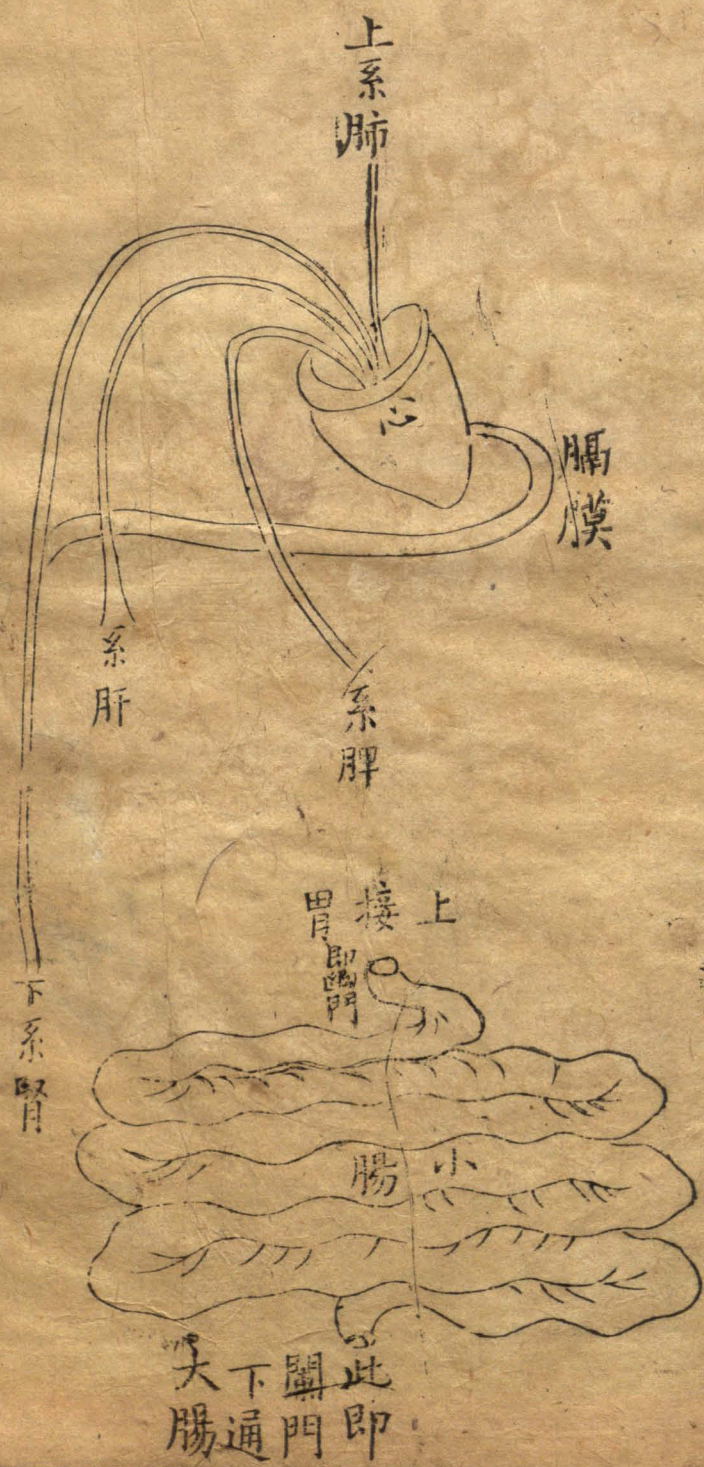 上系肺
心
膈膜
系肝
系脾
下系腎
上接胃
即幽門
小腸
此即
闌門
下通
大腸